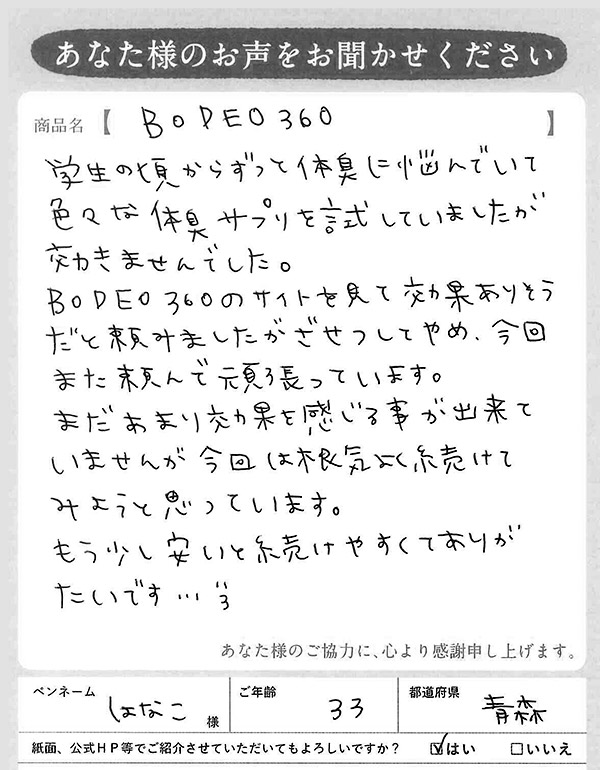 あなた様のお声をお聞かせください
商品名【 BODEO 360 】
学生の頃からずっと体臭に悩んでいて
色々な体臭サプリを試していましたが
効きませんでした。
BODEO 360のサイトを見て効果ありそう
だと頼みましたがざせつしてやめ、今回
また頼んで頑張っています。
まだあまり効果を感じる事が出来て
いませんが今回は根気よく続けて
みようと思っています。
もう少し安いと続けやすくてありが
たいです…
あなた様のご協力に、心より感謝申し上げます。
ペンネーム はなこ 様 ご年齢 33 都道府県 青森
紙面、公式HP等でご紹介させていただいてもよろしいですか? ☑はい □いいえ